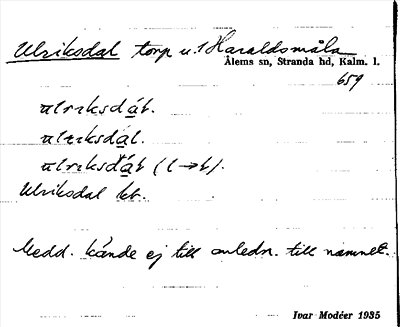 Ulriksdal torp u. 1 Haraldsmåla
Ålems sn, Stranda hd, Kalm. l.
659
ulriksdáł.
ulriksdál.
ulriksdáł (l → ł).
Ulriksdal kb.
Medd. kände ej till anledn. till namnet.
Ivar Modéer 1935